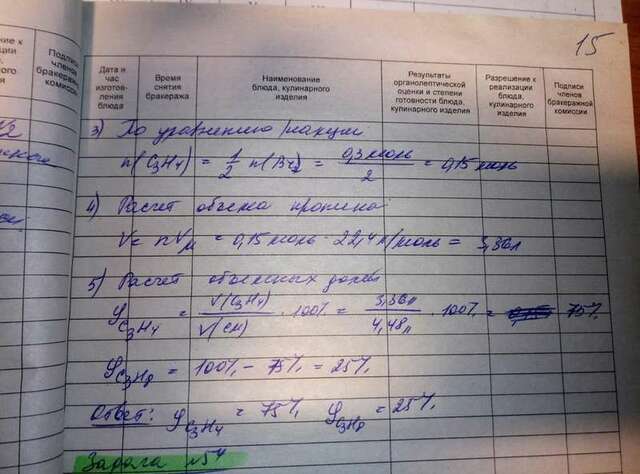 15
ние к
Подписи членов бракеражной комиссии
Дата и час изготов- ления блюда
Время снятия бракеража
Наименование блюда, кулинарного изделия
Результаты органолептической оценки и степени готовности блюда, кулинарного изделия
Разрешение к реализации блюда, кулинарного изделия
Подписи членов бракеражной комиссии
3) По уравнению реакции
n(C3H4) = 1/2 n(Br2) = 0,3 моль/2 = 0,15 моль
4) Расчет объема пропина
V = nVм = 0,15 моль · 22,4 л/моль = 3,36 л
5) Расчет объемных долей
φC3H4 = V(C3H4)/V(см) · 100% = 3,36л/4,48л · 100% = 75%
φC3H8 = 100% - 75% = 25%
Ответ: φC3H4 = 75% φC3H8 = 25%
Задача №54